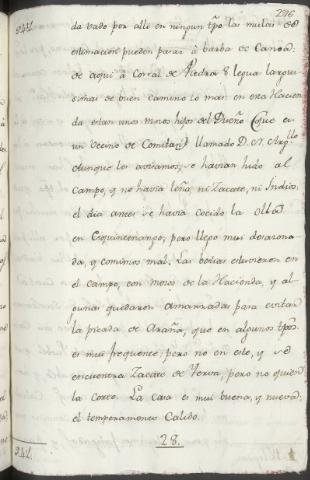 296
242.
da vado por alli en ningun tpõ las mulas de
estimacion pueden pasar à barba de Canoa:
de aqui à Corral de Piedra 8 legua larguis
simas de buen camino lo mas: en esta Hacien
da estan unos mozos hijos del Dueño (que es
un Vecino de Comitan) llamado D. N. Arg.llo
aunque les avisamos, se havian hido al
campo, y no havia leña, ni Zacate, ni Indios;
el dia antes se havia cocido la olla
en Esquintenango; pero llego mui desazona
da, y comimos mal; Las bestias estuvieron en
el campo, con mozos de la Hacienda, y al-
gunas quedaron amarradas para evitar
la picada de Araña, que en algunos tpõs.
es mui frequente, pero no en este, y se
encuentra Zacate de Yerva, pero no quien
la corte. La casa es mui buena, y nueva;
el temperamento Calido.
28.
242.